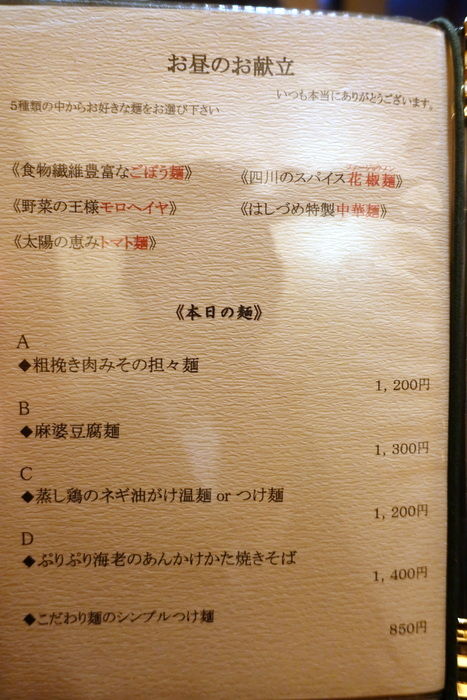 お昼のお献立
いつも本当にありがとうございます。
5種類の中からお好きな麺をお選び下さい
《食物繊維豊富なごぼう麺》
《四川のスパイス花椒麺》
《野菜の王様モロヘイヤ》
《はしづめ特製中華麺》
《太陽の恵みトマト麺》
《本日の麺》
A
◆粗挽き肉みその担々麺
1,200円
B
◆麻婆豆腐麺
1,300円
C
◆蒸し鶏のネギ油がけ温麺 or つけ麺
1,200円
D
◆ぷりぷり海老のあんかけかた焼きそば
1,400円
◆こだわり麺のシンプルつけ麺
850円